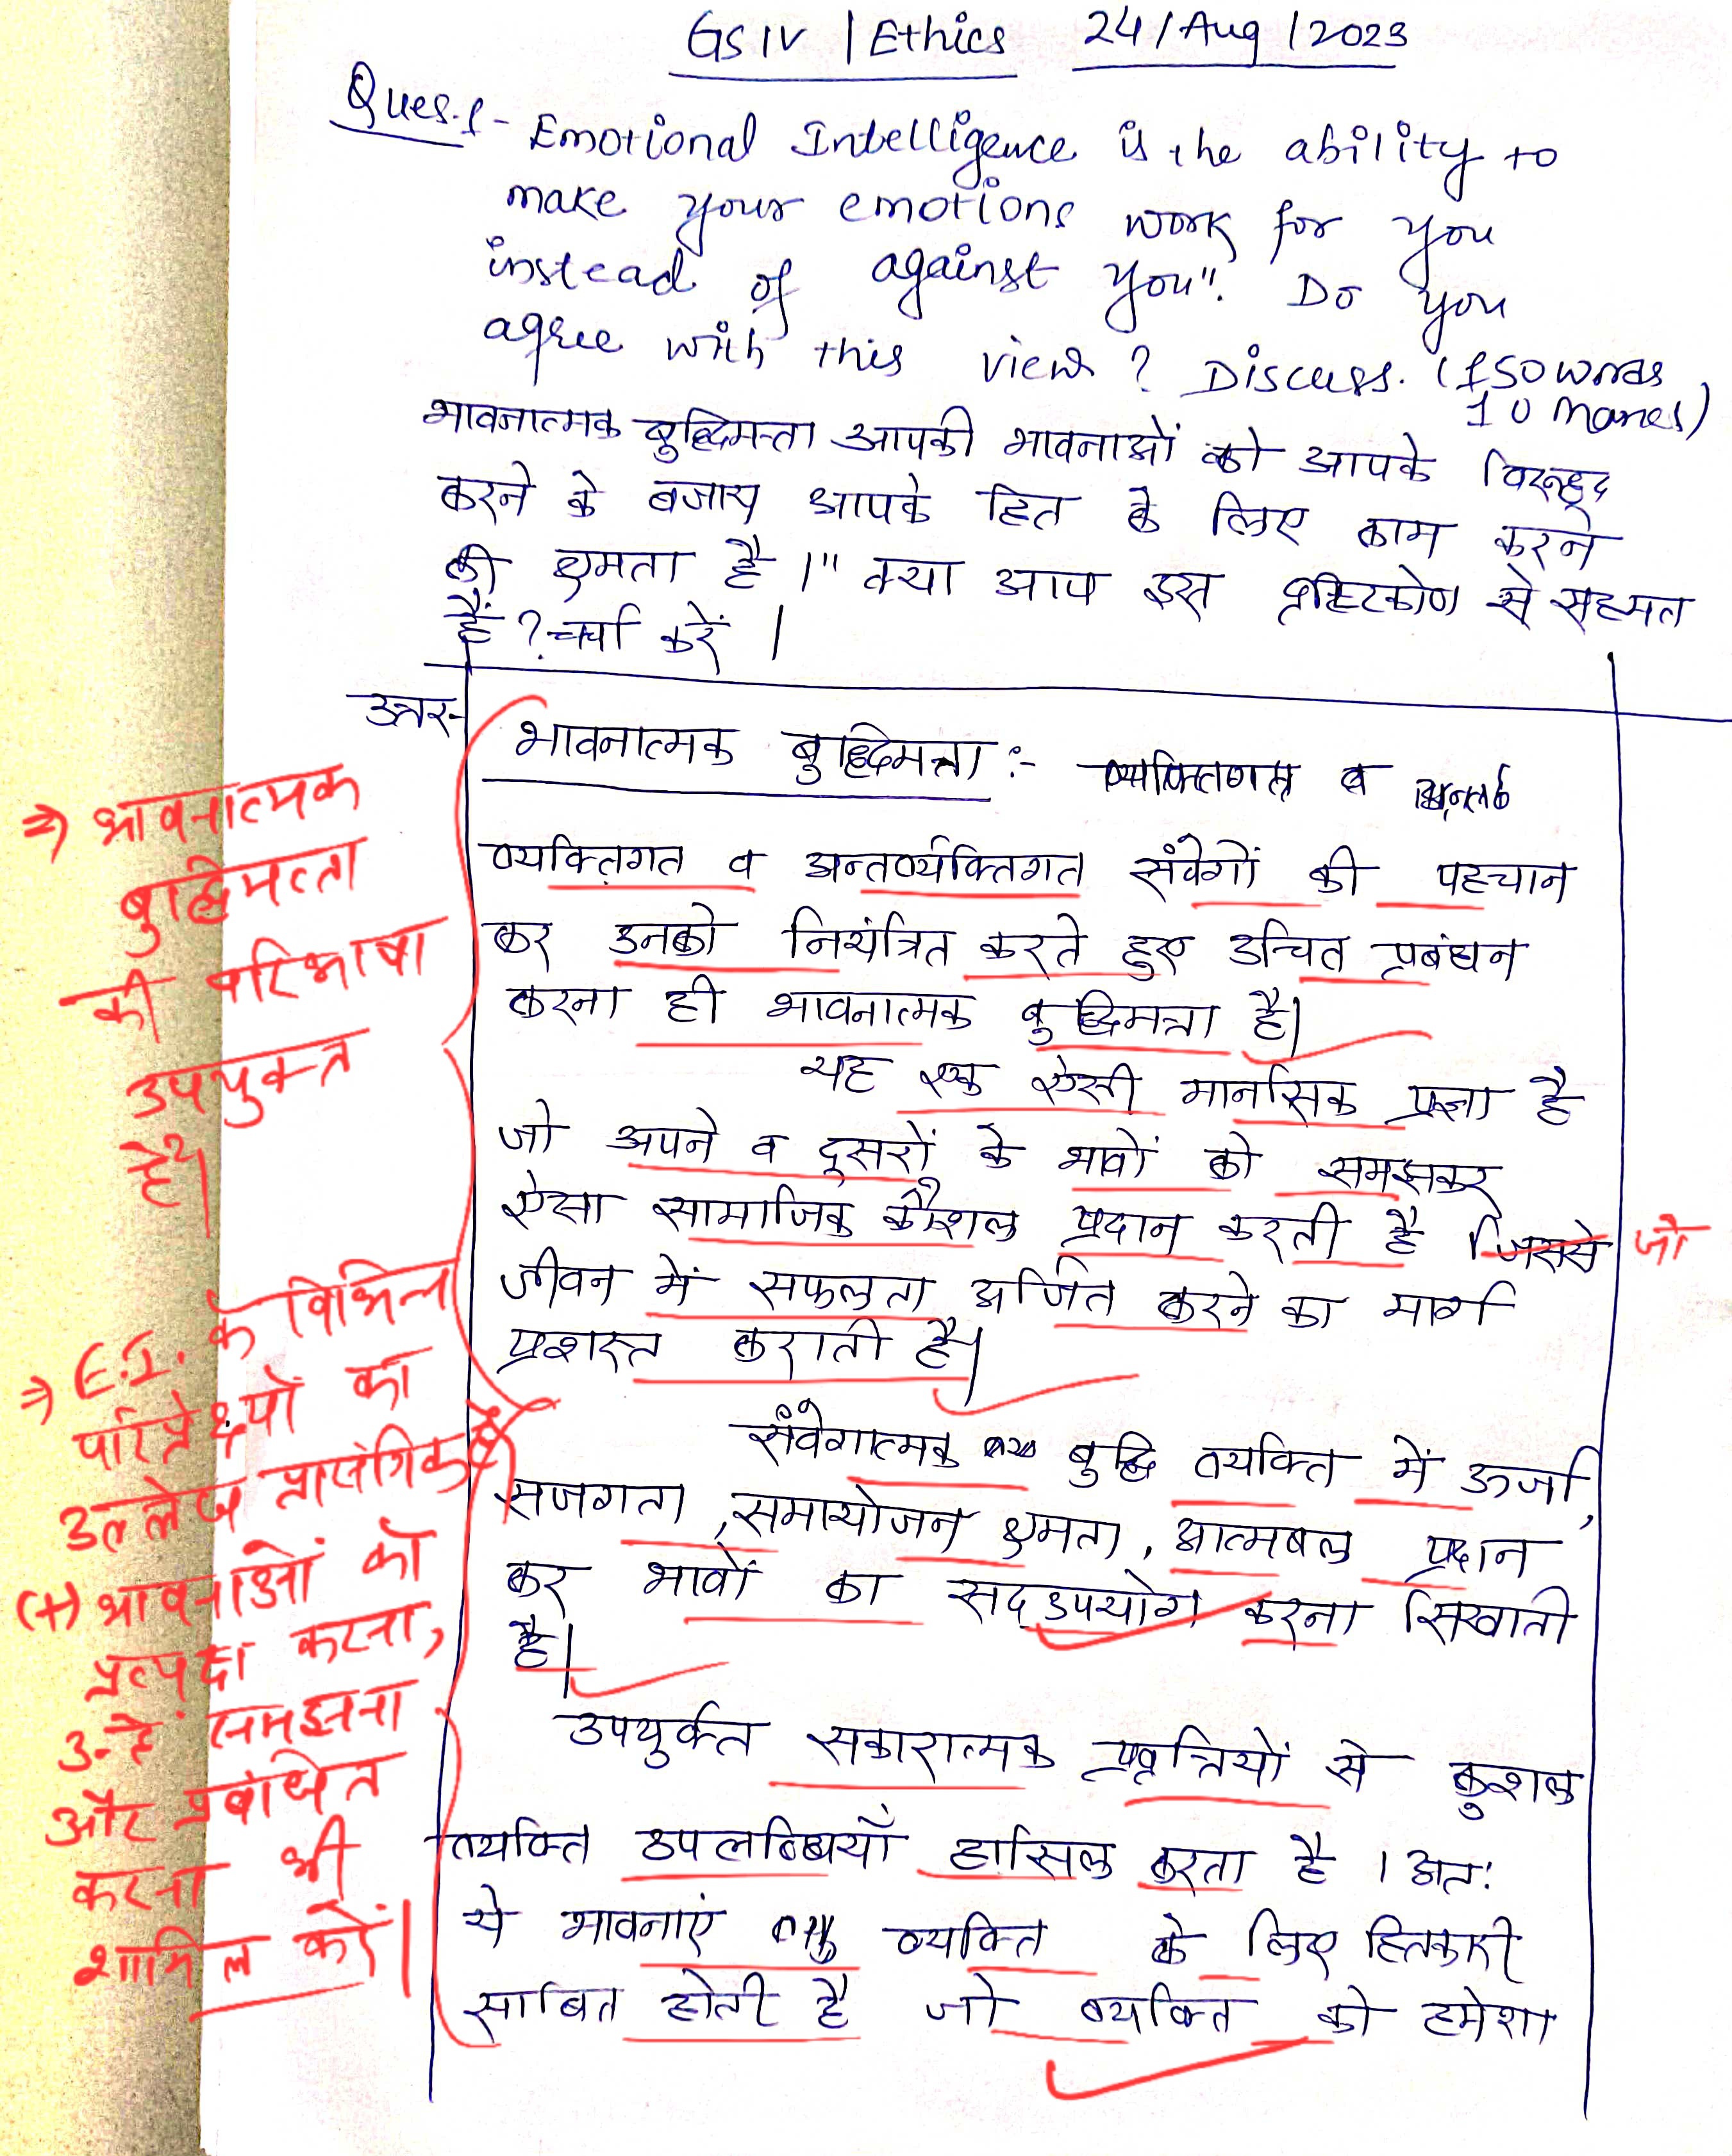 GS IV | Ethics 24/Aug/2023
Ques.1- Emotional Intelligence is the ability to
make your emotions work for you
instead of against you". Do you
agree with this view? Discuss. (150 words,
10 Marks)
भावनात्मक बुद्धिमत्ता आपकी भावनाओं को आपके विरूद्ध
करने के बजाय आपके हित के लिए काम करने
की क्षमता है।" क्या आप इस दृष्टिकोण से सहमत
हैं? चर्चा करें।
उत्तर-
भावनात्मक बुद्धिमत्ता :- व
व्यक्तिगत व अन्तर्व्यक्तिगत संवेगों की पहचान
कर उनको नियंत्रित करते हुए उचित प्रबंधन
करना ही भावनात्मक बुद्धिमत्ता है।
यह एक ऐसी मानसिक प्रज्ञा है
जो अपने व दूसरों के भावों को समझकर
ऐसा सामाजिक कौशल प्रदान करती है जिससे जो
जीवन में सफलता अर्जित करने का मार्ग
प्रशस्त कराती है।
संवेगात्मक बुद्धि व्यक्ति में ऊर्जा,
सजगता, समायोजन क्षमता, आत्मबल प्रदान
कर भावों का सदउपयोग करना सिखाती
है।
उपर्युक्त सकारात्मक प्रवृत्तियों से कुशल
व्यक्ति उपलब्धियाँ हासिल करता है। अतः
ये भावनाएं व्यक्ति के लिए हितकारी
साबित होती है जो व्यक्ति को हमेशा
⇒ भावनात्मक
बुद्धिमत्ता
की परिभाषा
उपयुक्त
है।
⇒ E.I. के विभिन्न
परिप्रेक्ष्यों का
उल्लेख प्रासंगिक है
(+) भावनाओं को
प्रत्यक्ष करना,
उन्हें समझना
और प्रबंधित
करना भी
शामिल करें।